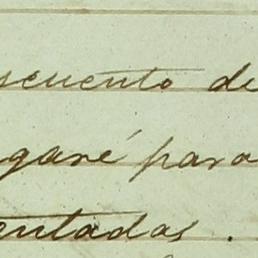 scuento de
garé para
entadas.